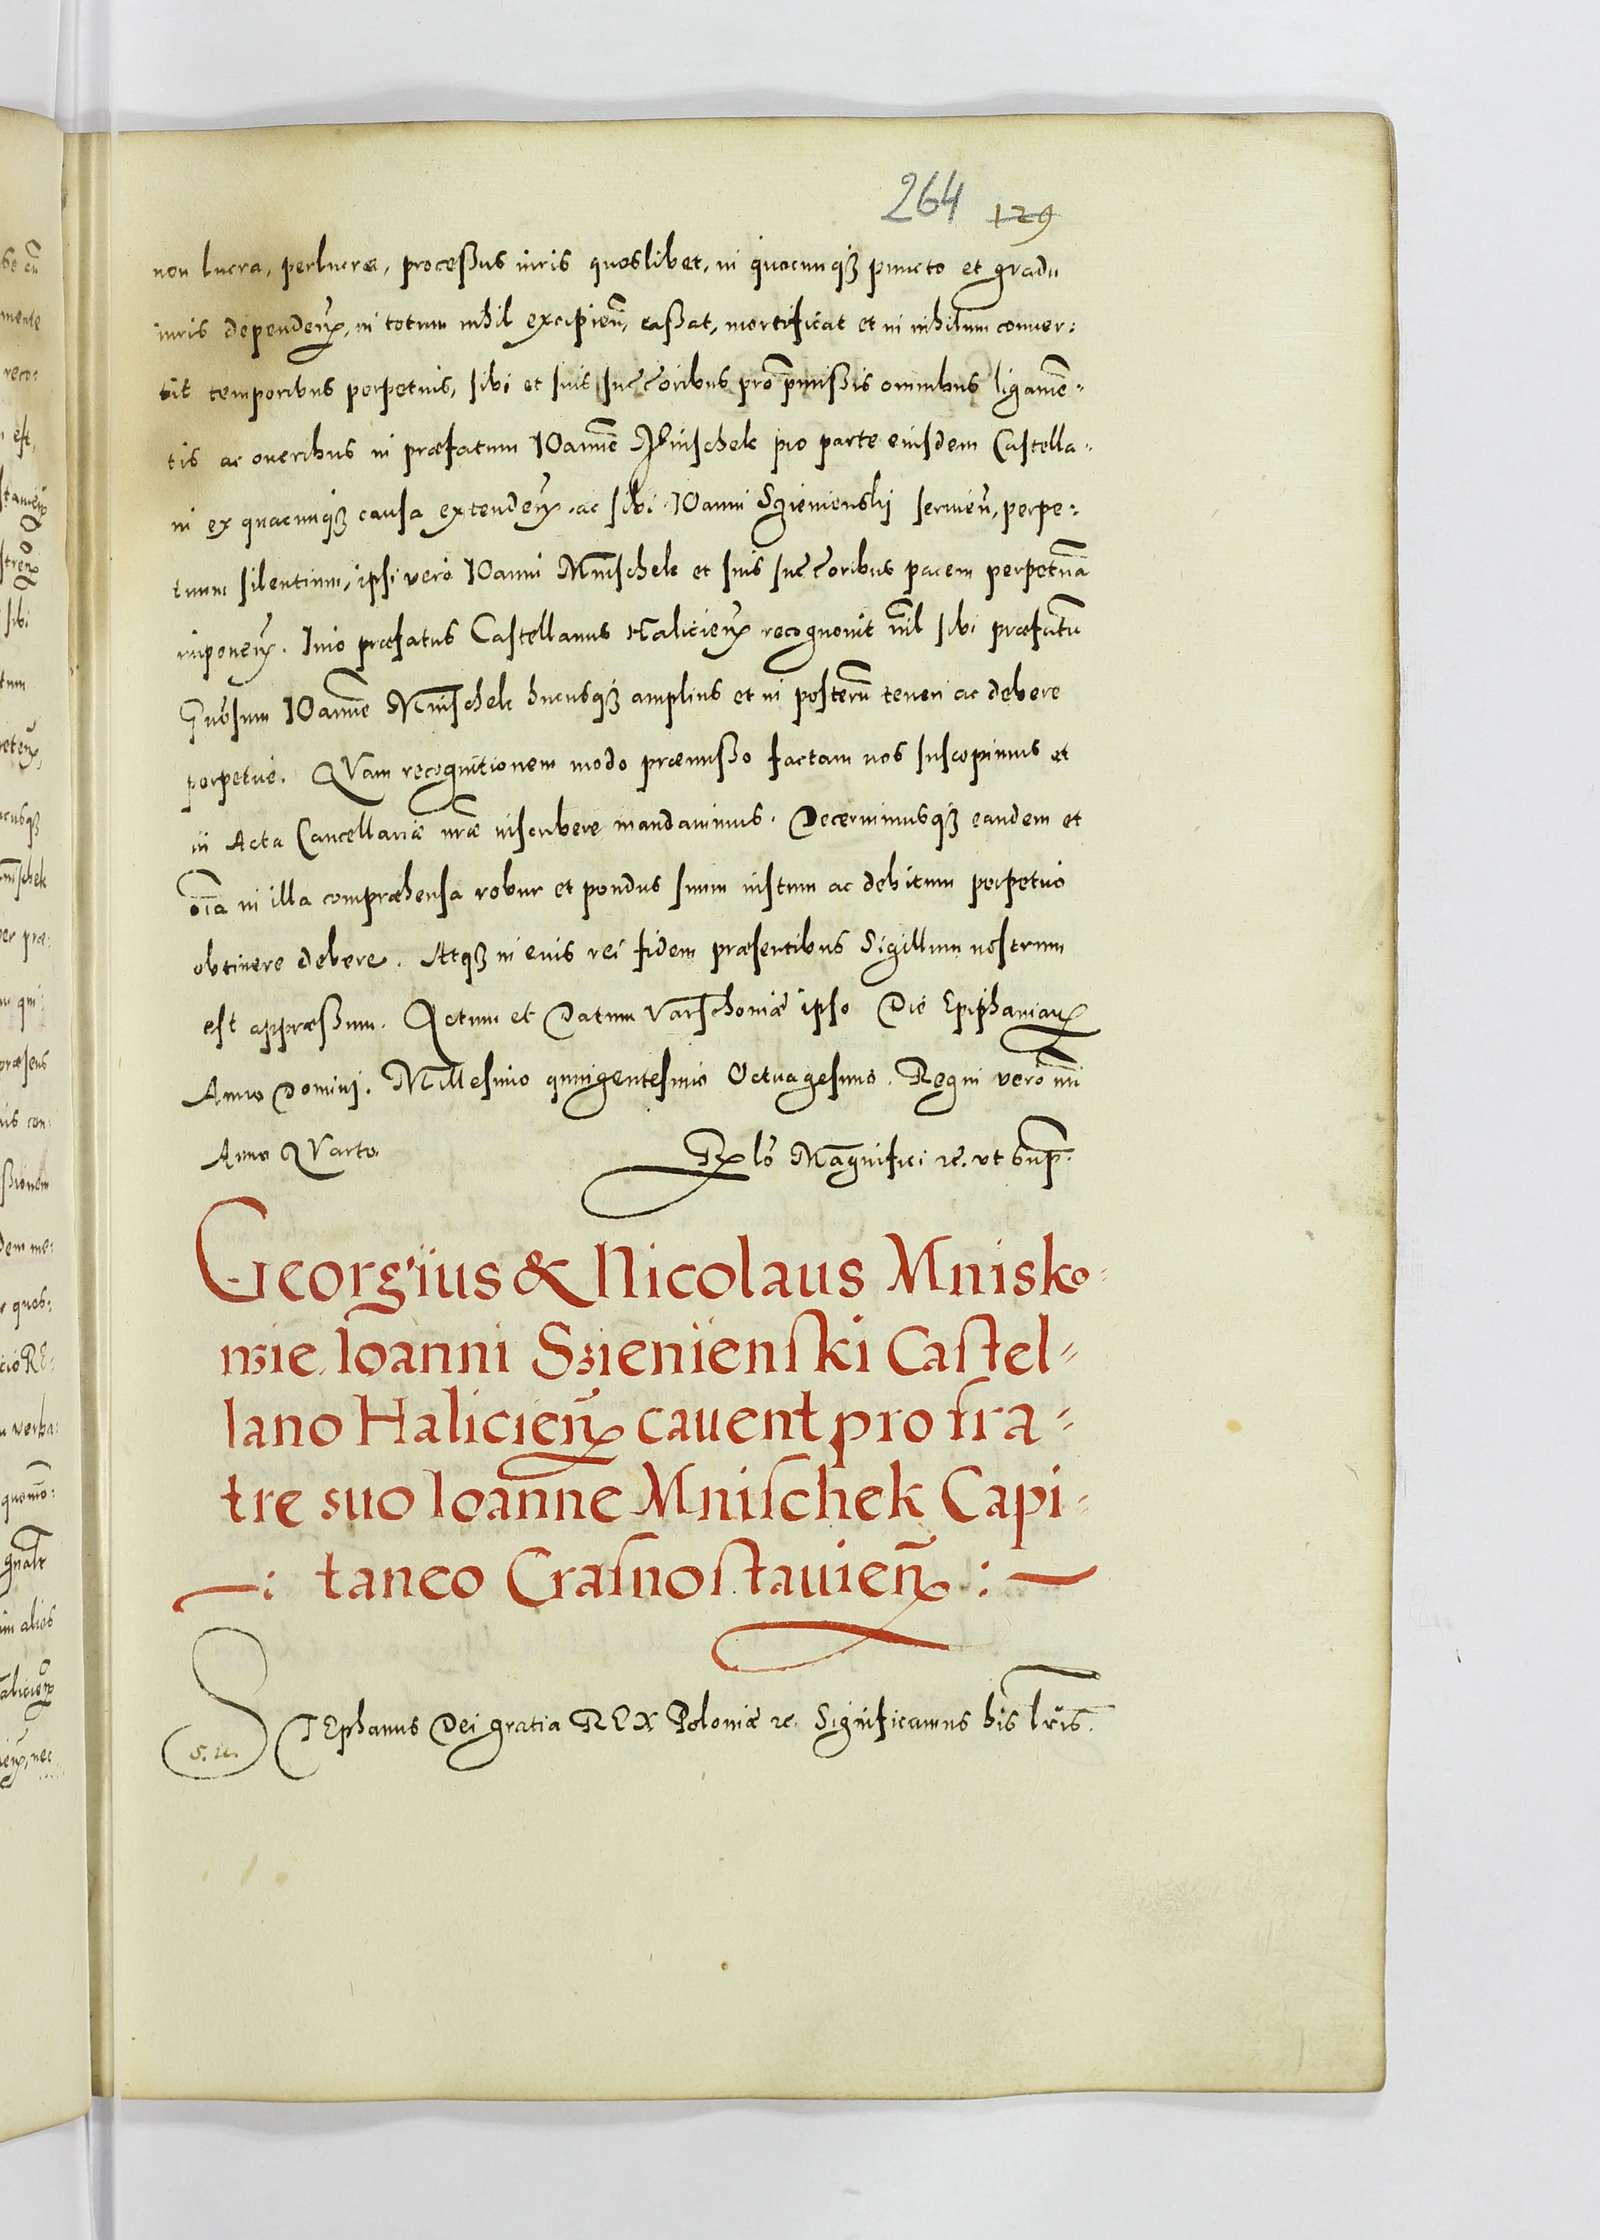 264 129
non lucra, perlucra, processus iuris quoslibet, in quocunqꝫ puncto et gradu
iuris dependeñ, in totum nihil excipieñ, cassat, mortificat et in nihilum conuer:
tit temporibus perpetuis, sibi et suis succ̃oribus pro p̃missis omnibus ligamẽ:
tis ac oneribus in præfatum IOannẽ Mnischek pro parte eiusdem Castella:
ni ex quacunqꝫ causa extendeñ. ac sibi IOanni Szienienskj seruieñ, perpe:
tuum silentium, ipsi vero IOanni Mnischek et suis succ̃oribus pacem perpetuã
imponeñ. Imo præfatus Castellanus Halicieñ recognouit nil sibi præfatũ
IOannẽ Mnischek hucusqꝫ amplius et in posterũ teneri ac debere
perpetue. QVam recognitionem modo præmisso factam nos suscepimus et
in Acta Cancellariæ nr̃æ inscribere mandauimus. Decernimusqꝫ eandem et
oĩa in illa compræhensa robur et pondus suum iustum ac debitum perpetuo
obtinere debere. Atqꝫ in euis rei fidem præsentibus Sigillum nostrum
est appræssum. Actum et Datum Varschouiæ ipso Die Epiphaniarꝝ
Anno Dominj. Millesimo quingentesimo Octuagesimo. Regni vero nr̃i
Anno QVarto. Rlõ Magnifici ꝛc. vt sup̃.
Georgius & Nicolaus Mnisko-
wzie Ioanni Szienienski Castel-
lano Halicieñ cauent pro fra-
tre suo Ioanne Mnischek Capi-
—: taneo Crasnostauieñ :—
STEphanus Dei gratia REX Poloniæ ꝛc. Significamus his lr̃is.
s. ꝛc.